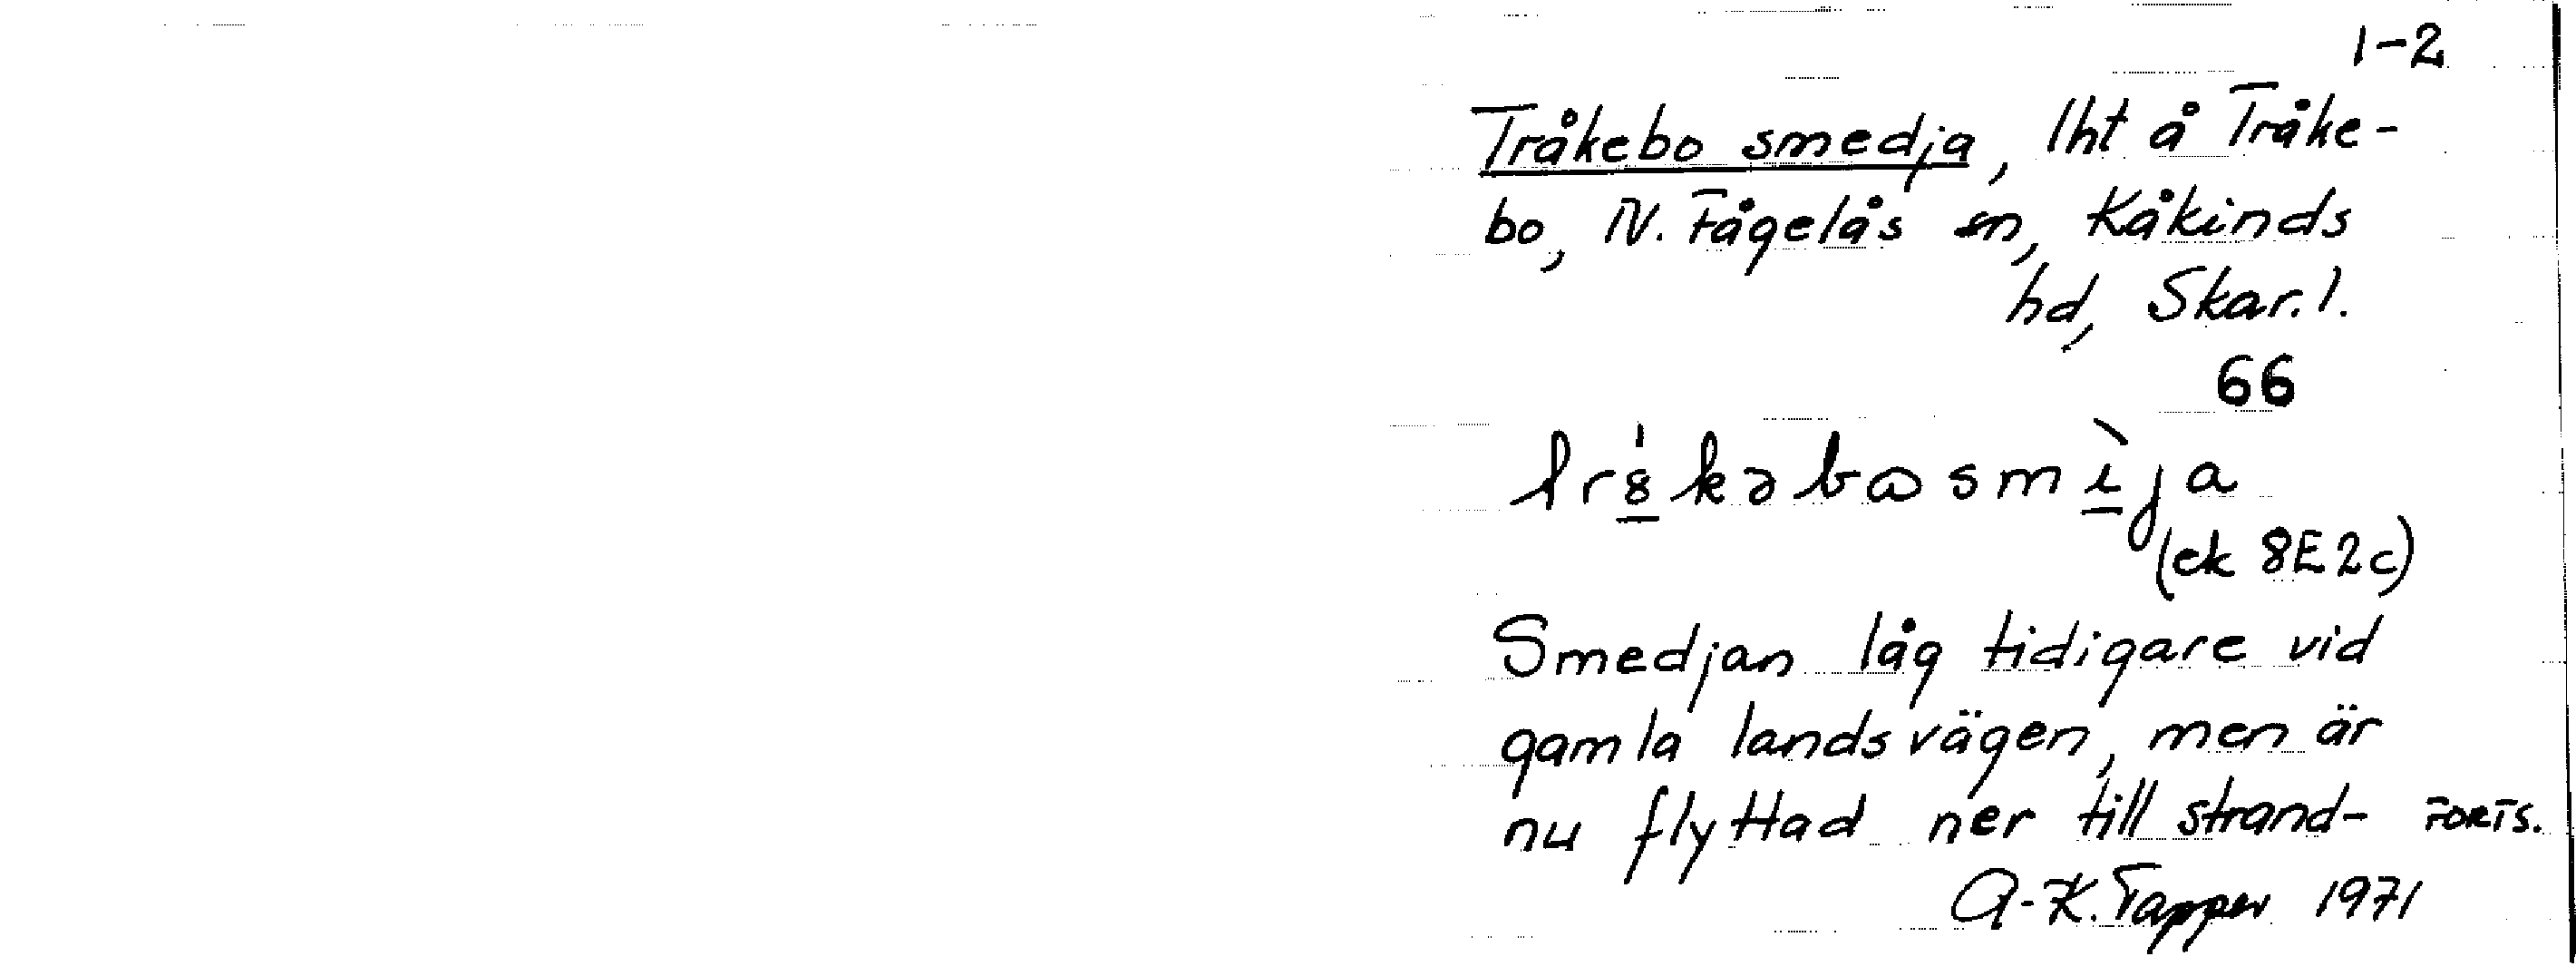 1-2
Tråkebo smedja, lht å Tråke-
bo, N. Fågelås sn, Kåkinds
hd, Skar. l.
66
(ek 8E2c)
Smedjan låg tidigare vid
gamla landsvägen, men är
nu flyttad ner till strand- FORTS.
A-K. Tapper 1971